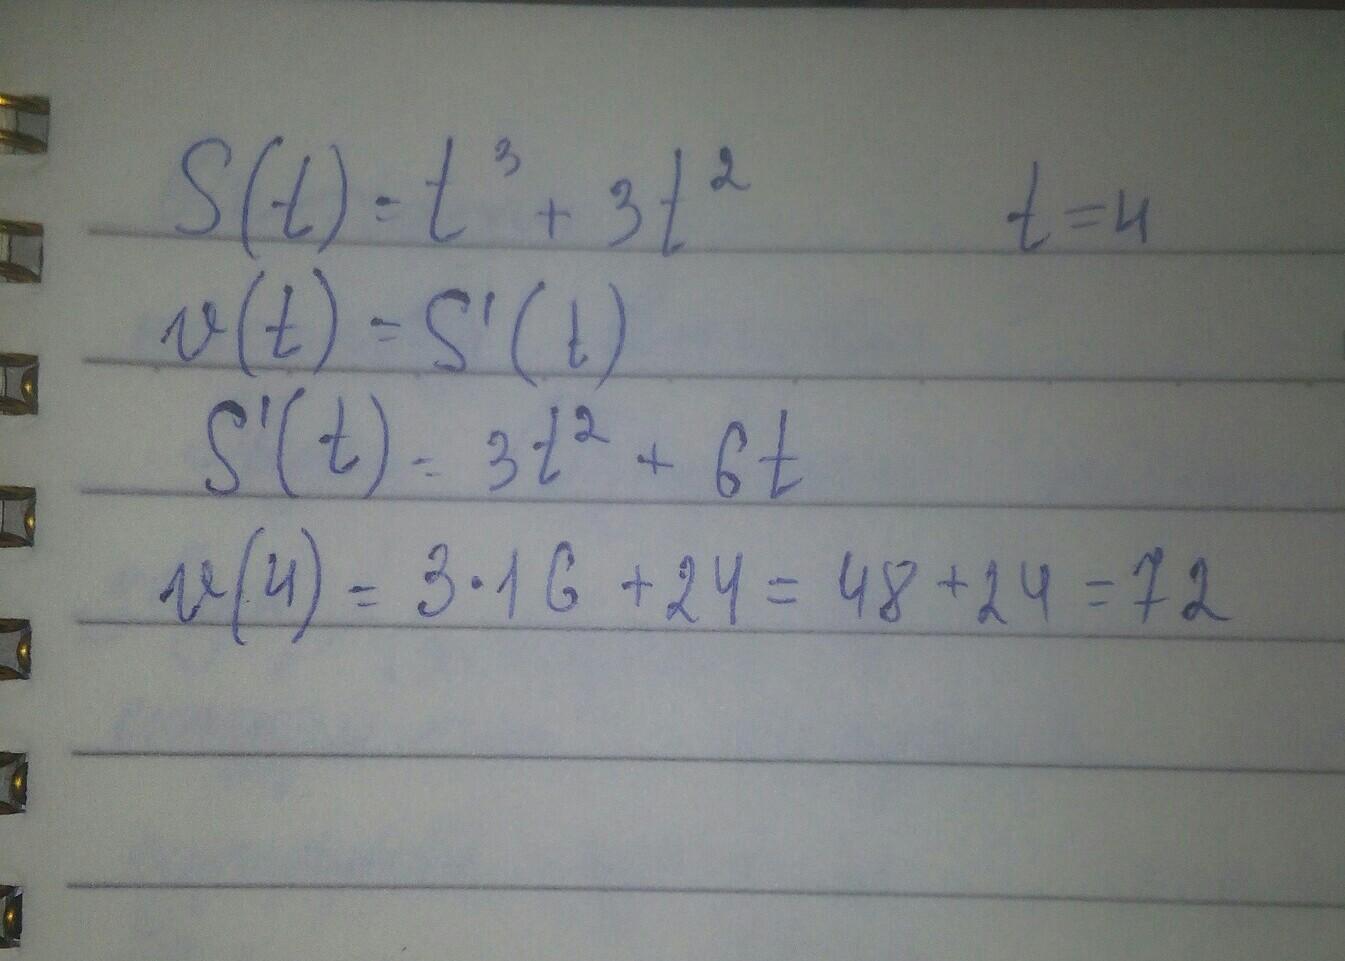 S(t) = t³ + 3t² t = 4
v(t) = S'(t)
S'(t) = 3t² + 6t
v(4) = 3·16 + 24 = 48 + 24 = 72